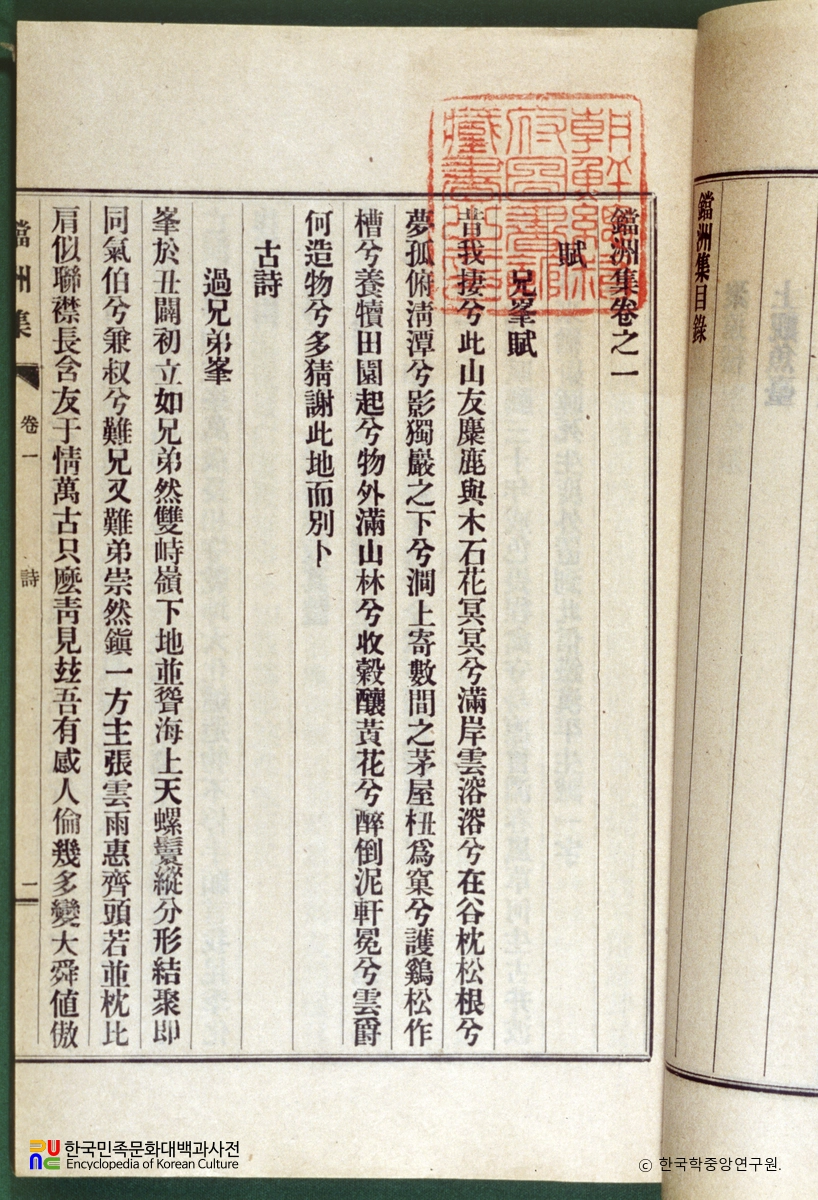 鐺洲集目錄
朝鮮總督府圖書館藏書之印
鐺洲集卷之一
賦
兄峯賦
昔我捿兮此山友麋鹿與木石花冥冥兮滿岸雲溶溶兮在谷枕松根兮
夢孤俯淸潭兮影獨巖之下兮澗上寄數間之茅屋杻爲窠兮護鷄松作
槽兮養犢田園起兮物外滿山林兮收穀釀黃花兮醉倒泥軒冕兮雲爵
何造物兮多猜謝此地而別卜
古詩
過兄弟峯
峯於丑闢初立如兄弟然雙峙嶺下地並聳海上天螺鬟縱分形結聚即
同氣伯兮兼叔兮難兄又難弟崇然鎭一方主張雲雨惠齊頭若並枕比
肩似聯襟長含友于情萬古只麽靑見玆吾有感人倫幾多變大舜値傲
鐺洲集 卷一 詩 二
한국민족문화대백과사전
Encyclopedia of Korean Culture
ⓒ 한국학중앙연구원.